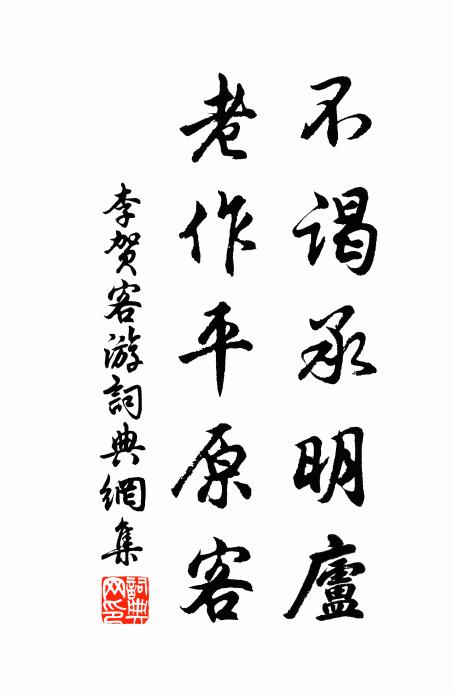 不谒承明廬
老作平原客
李贺客游詞典網集
詞典网印